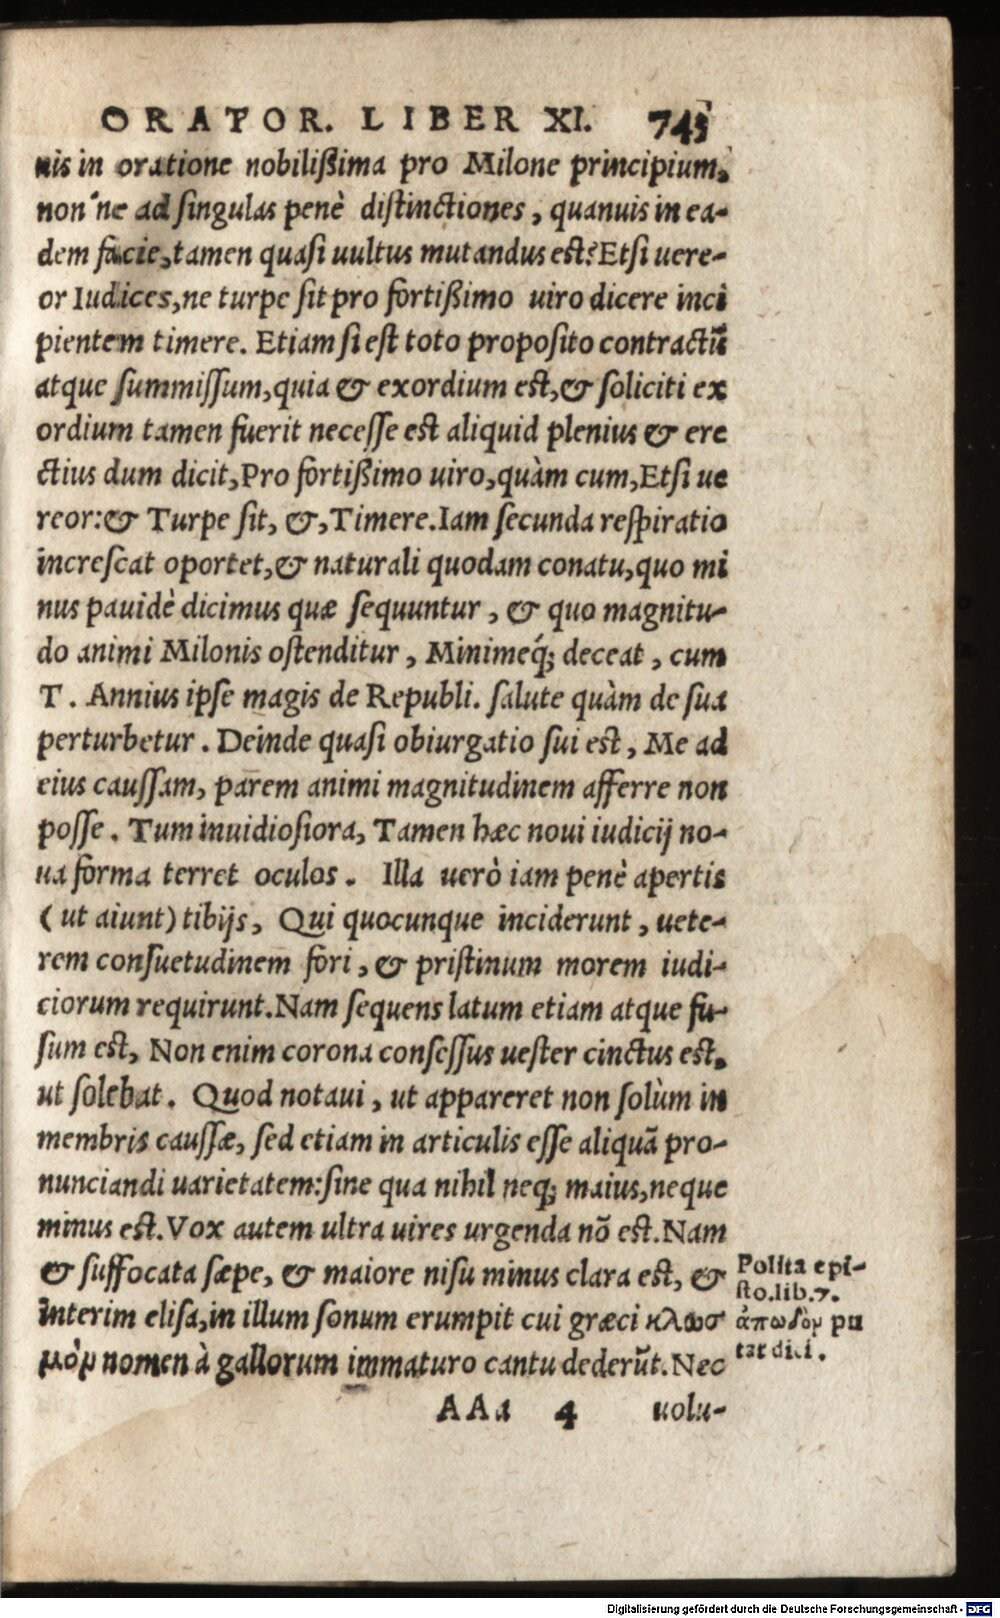 ORATOR. LIBER XI. 743
nis in oratione nobilißima pro Milone principium,
non ne ad ſingulas penè diſtinctiones, quanuis in ea-
dem facie, tamen quaſi uultus mutandus eſt? Etſi uere-
or Iudices, ne turpe ſit pro fortißimo uiro dicere inci
pientem timere. Etiam ſi eſt toto propoſito contractũ
atque ſummiſſum, quia & exordium eſt, & ſoliciti ex
ordium tamen fuerit neceſſe eſt aliquid plenius & ere
ctius dum dicit, Pro fortißimo uiro, quàm cum, Etſi ue
reor: & Turpe ſit, &, Timere. Iam ſecunda reſpiratio
increſcat oportet, & naturali quodam conatu, quo mi
nus pauidè dicimus quæ ſequuntur, & quo magnitu-
do animi Milonis oſtenditur, Minimeq́; deceat, cum
T. Annius ipſe magis de Republi. ſalute quàm de ſua
perturbetur. Deinde quaſi obiurgatio ſui eſt, Me ad
eius cauſſam, parem animi magnitudinem afferre non
poſſe. Tum inuidioſiora, Tamen hæc noui iudicij no-
ua forma terret oculos. Illa uerò iam penè apertis
(ut aiunt) tibijs, Qui quocunque inciderunt, uete-
rem conſuetudinem fori, & priſtinum morem iudi-
ciorum requirunt. Nam ſequens latum etiam atque fu-
ſum eſt, Non enim corona conſeſſus ueſter cinctus eſt,
ut ſolebat. Quod notaui, ut appareret non ſolùm in
membris cauſſæ, ſed etiam in articulis eſſe aliquã pro-
nunciandi uarietatem: ſine qua nihil neq; maius, neque
minus eſt. Vox autem ultra uires urgenda nõ eſt. Nam
& ſuffocata ſæpe, & maiore niſu minus clara eſt, &
interim eliſa, in illum ſonum erumpit cui græci κλωσ
μὸν nomen à gallorum immaturo cantu dederũt. Nec
Polita epi-
ſto. lib. 7.
ἀπωδὸν pu
tat dici.
AAa 4 uolu-
Digitalisierung gefördert durch die Deutsche Forschungsgemeinschaft - DFG